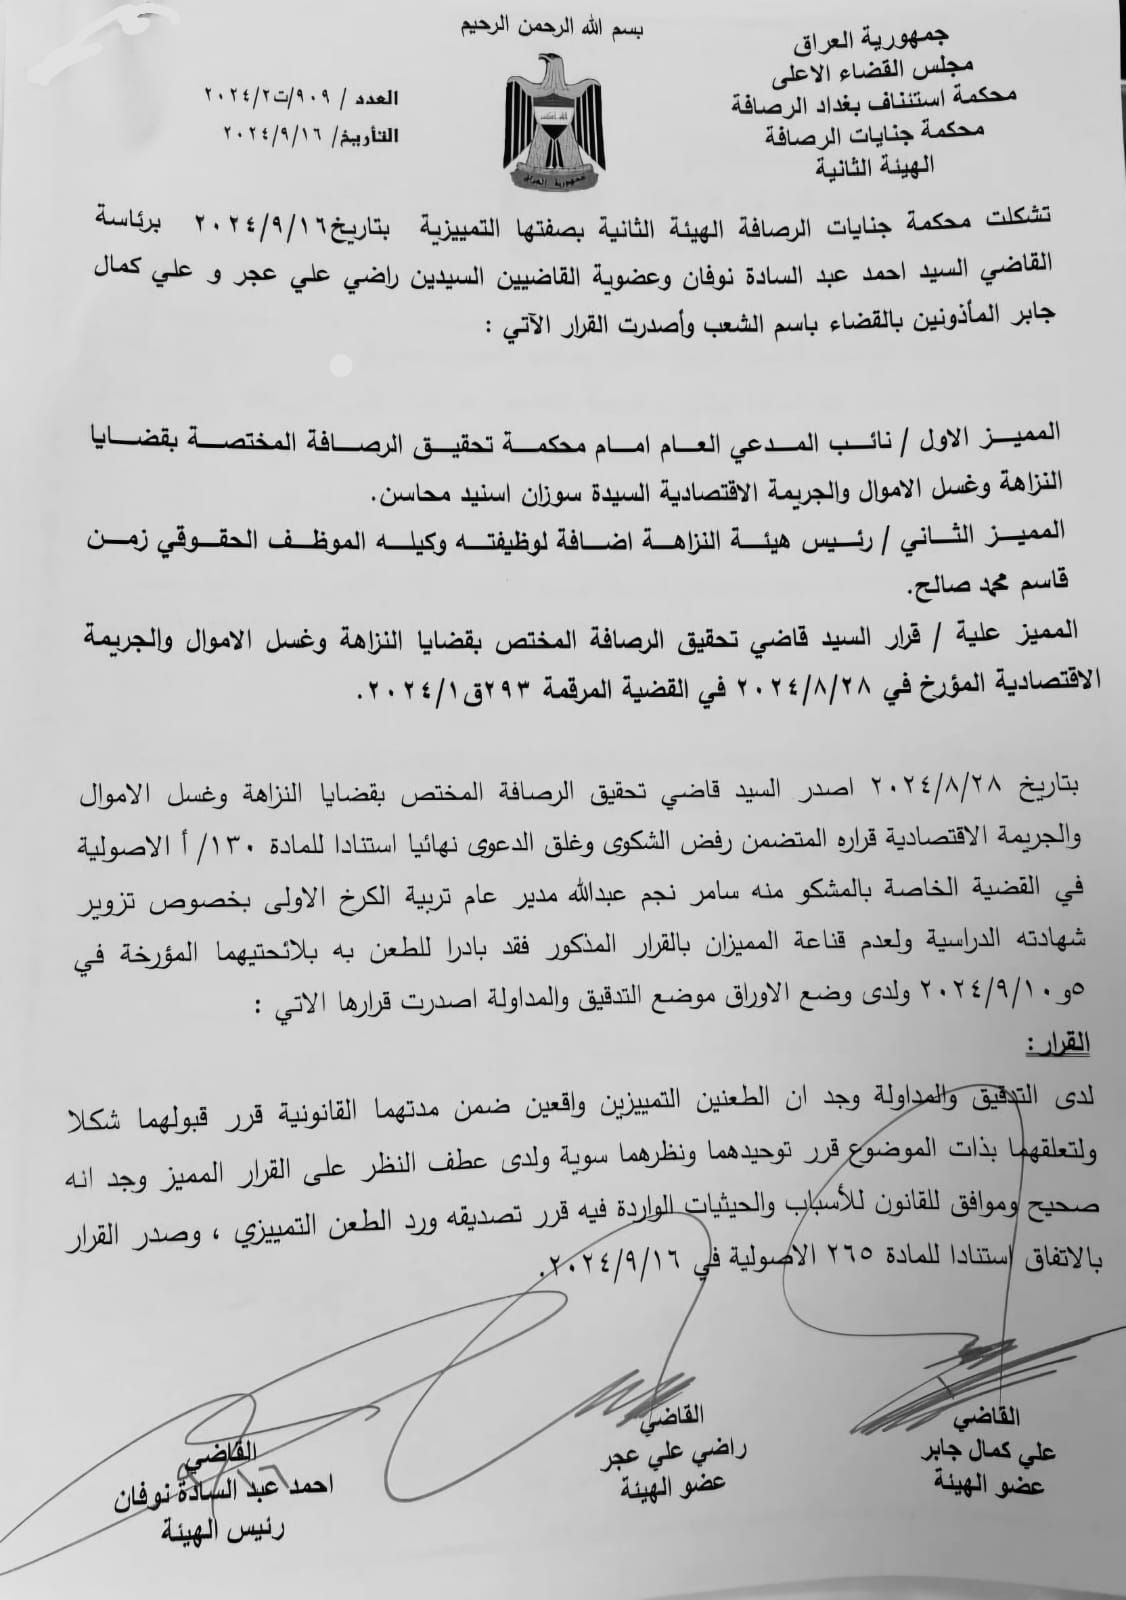 بسم الله الرحمن الرحيم
جمهورية العراق
مجلس القضاء الاعلى
محكمة استئناف بغداد الرصافة
محكمة جنايات الرصافة
الهيئة الثانية
العدد / ٩٠٩/ت٢٠٢٤/٢
التأريخ/ ٢٠٢٤/٩/١٦
جمهورية العراق
تشكلت محكمة جنايات الرصافة الهيئة الثانية بصفتها التمييزية بتاريخ٢٠٢٤/٩/١٦ برئاسة
القاضي السيد احمد عبد السادة نوفان وعضوية القاضيين السيدين راضي علي عجر و علي كمال
جابر المأذونين بالقضاء باسم الشعب وأصدرت القرار الآتي :
المميز الاول / نائب المدعي العام امام محكمة تحقيق الرصافة المختصة بقضايا
النزاهة وغسل الاموال والجريمة الاقتصادية السيدة سوزان اسنيد محاسن.
المميز الثاني / رئيس هيئة النزاهة اضافة لوظيفته وكيله الموظف الحقوقي زمن
قاسم محمد صالح.
المميز علية / قرار السيد قاضي تحقيق الرصافة المختص بقضايا النزاهة وغسل الاموال والجريمة
الاقتصادية المؤرخ في ٢٠٢٤/٨/٢٨ في القضية المرقمة ٢٩٣ق٢٠٢٤/١.
بتاريخ ٢٠٢٤/٨/٢٨ اصدر السيد قاضي تحقيق الرصافة المختص بقضايا النزاهة وغسل الاموال
والجريمة الاقتصادية قراره المتضمن رفض الشكوى وغلق الدعوى نهائيا استنادا للمادة ١٣٠/ أ الاصولية
في القضية الخاصة بالمشكو منه سامر نجم عبدالله مدير عام تربية الكرخ الاولى بخصوص تزوير
شهادته الدراسية ولعدم قناعة المميزان بالقرار المذكور فقد بادرا للطعن به بلائحتيهما المؤرخة في
٥و٢٠٢٤/٩/١٠ ولدى وضع الاوراق موضع التدقيق والمداولة اصدرت قرارها الاتي :
القرار :
لدى التدقيق والمداولة وجد ان الطعنين التمييزين واقعين ضمن مدتهما القانونية قرر قبولهما شكلا
ولتعلقهما بذات الموضوع قرر توحيدهما ونظرهما سوية ولدى عطف النظر على القرار المميز وجد انه
صحيح وموافق للقانون للأسباب والحيثيات الواردة فيه قرر تصديقه ورد الطعن التمييزي ، وصدر القرار
بالاتفاق استنادا للمادة ٢٦٥ الاصولية في ٢٠٢٤/٩/١٦.
القاضي
علي كمال جابر
عضو الهيئة
القاضي
راضي علي عجر
عضو الهيئة
القاضي
احمد عبد السادة نوفان
رئيس الهيئة